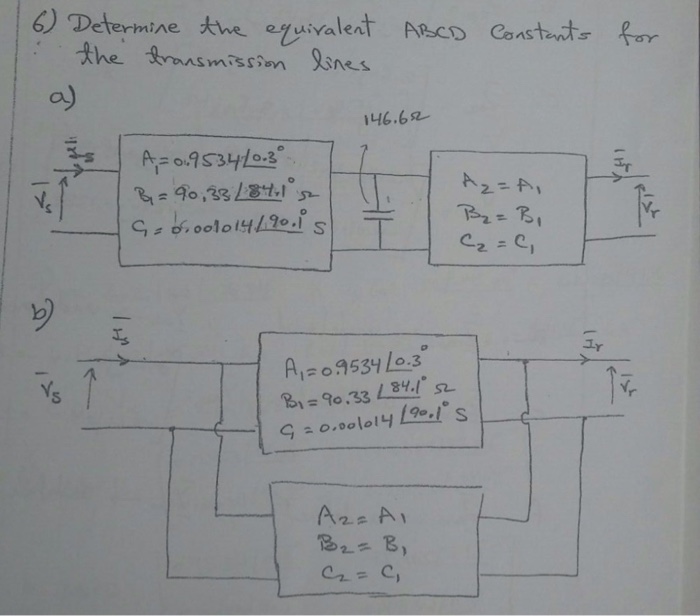 6) Determine the equivalent ABCD Constants for
the transmission lines
a)
146.6Ω
Īs
V̄s
A₁=0.9534∠0.3°
B₁=90.33∠84.1° Ω
C₁=0.001014∠90.1° S
A₂=A₁
B₂=B₁
C₂=C₁
Īr
V̄r
b)
Īs
V̄s
A₁=0.9534∠0.3°
B₁=90.33∠84.1° Ω
C₁=0.001014∠90.1° S
Īr
V̄r
A₂=A₁
B₂=B₁
C₂=C₁